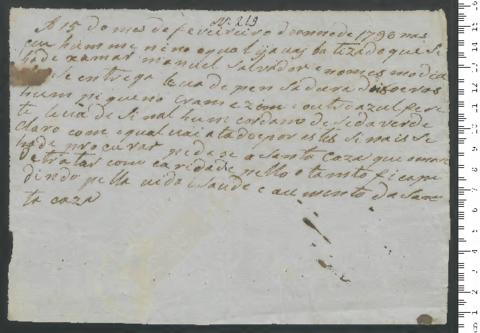 Nº 219
A 15 do mes de feveireiro do anno de 1796 nas
ceu hum me nino o qual ija vai ba tizado que se
ha de xamar manuel salvador e no mes mo dia
se entrega leva de pen sadura dois oeiros
hum pi queno cram e zim e outro azul fer
te leva de si nal hum cordam de seda verde
claro com o qual vai a tado por es tes si nais se
ha de pro curar pede se a santa caza que o mande
tratar com caridade pello o tanto fica pe
dindo pella vida e saude e au mento da san
ta caza